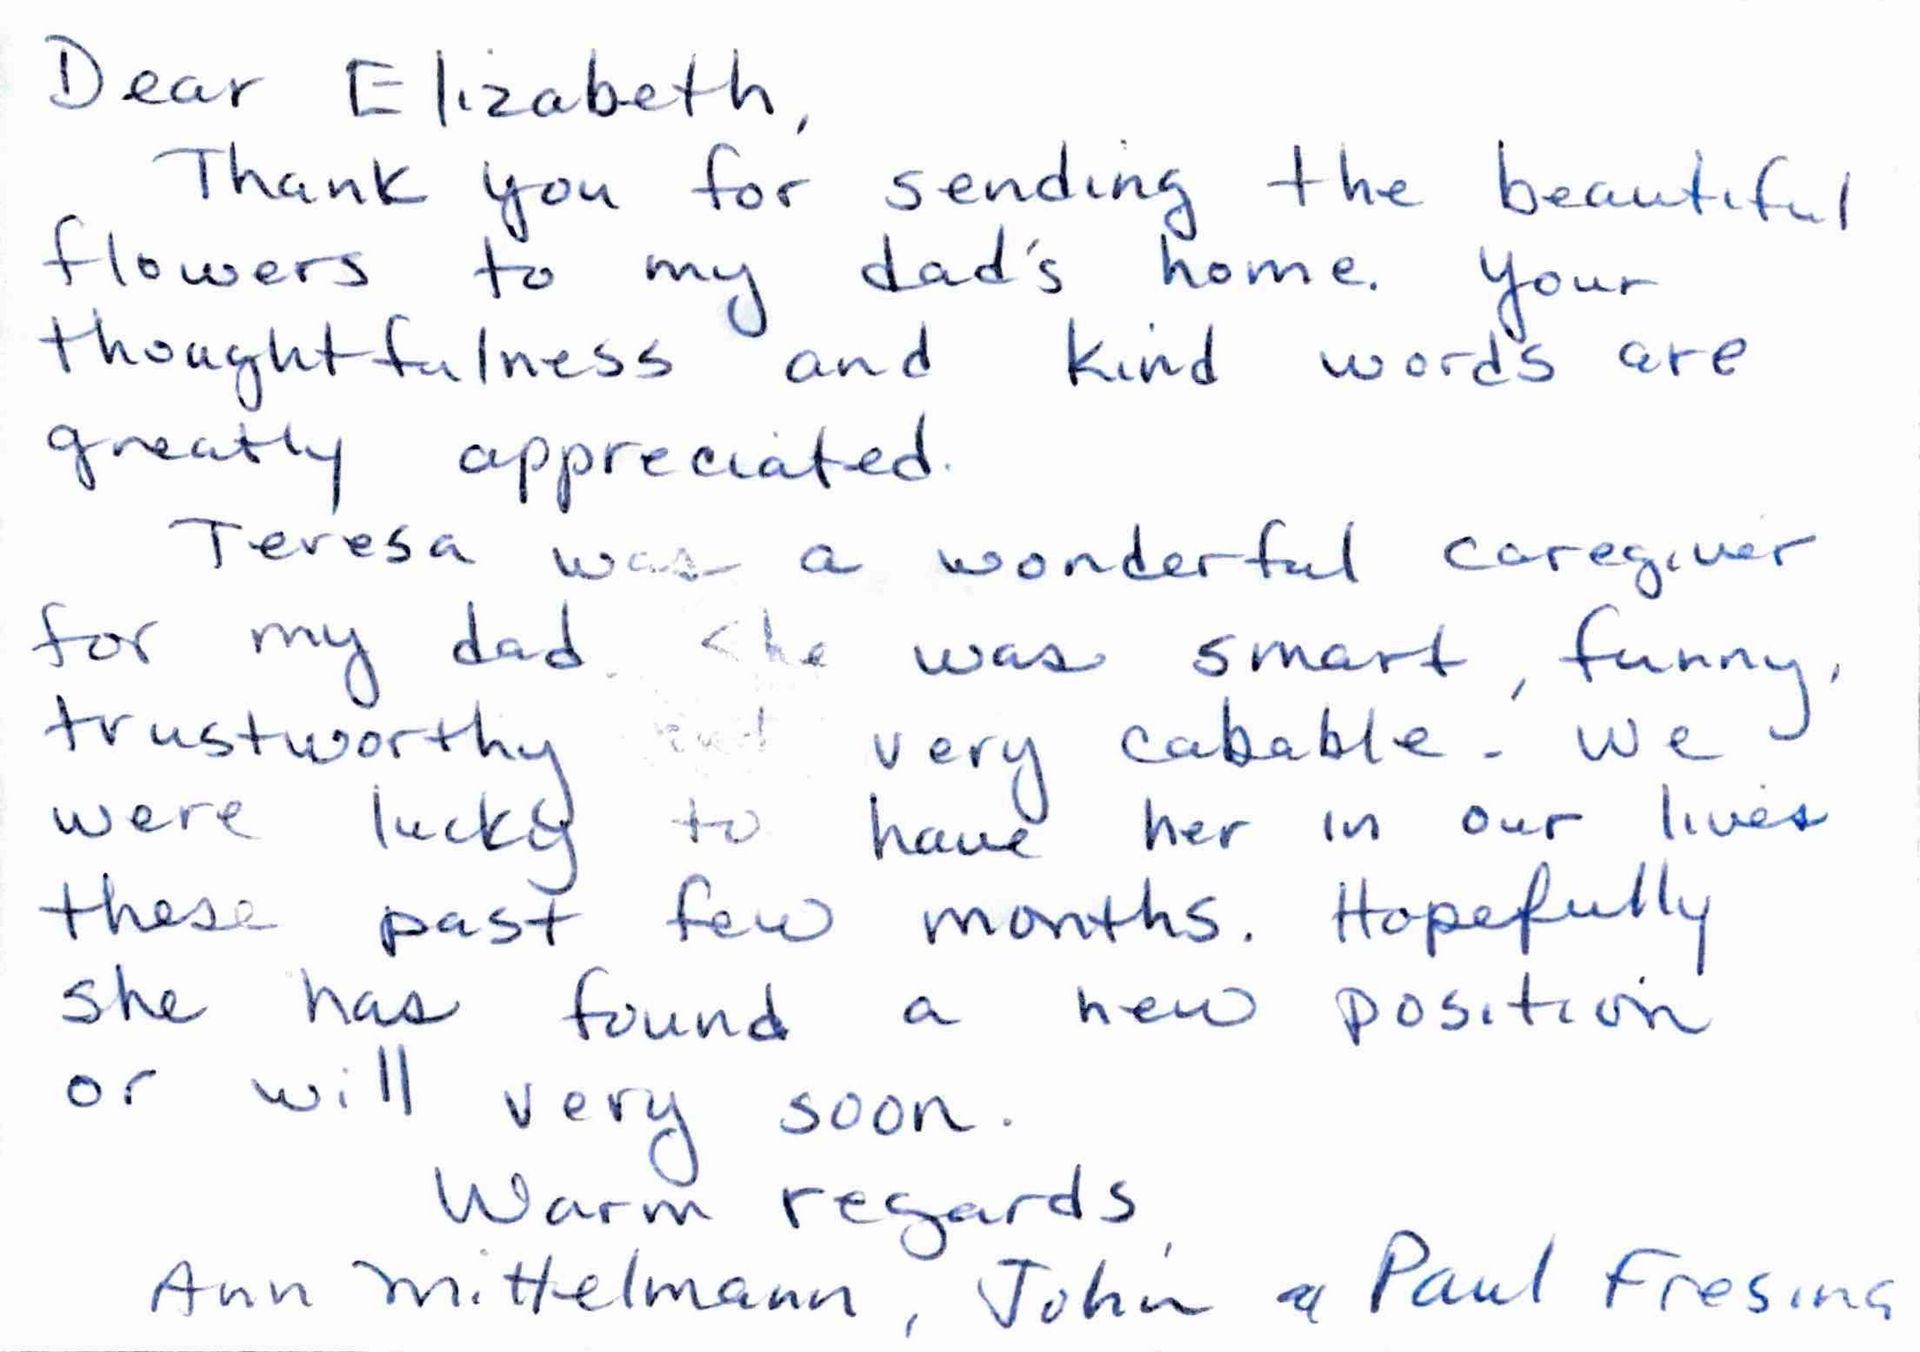 Dear Elizabeth,
Thank you for sending the beautiful
flowers to my dad's home. Your
thoughtfulness and kind words are
greatly appreciated.
Teresa was a wonderful caregiver
for my dad. She was smart, funny,
trustworthy and very cabable. We
were lucky to have her in our lives
these past few months. Hopefully
she has found a new position
or will very soon.
Warm regards,
Ann Mittelmann, John & Paul Fresina